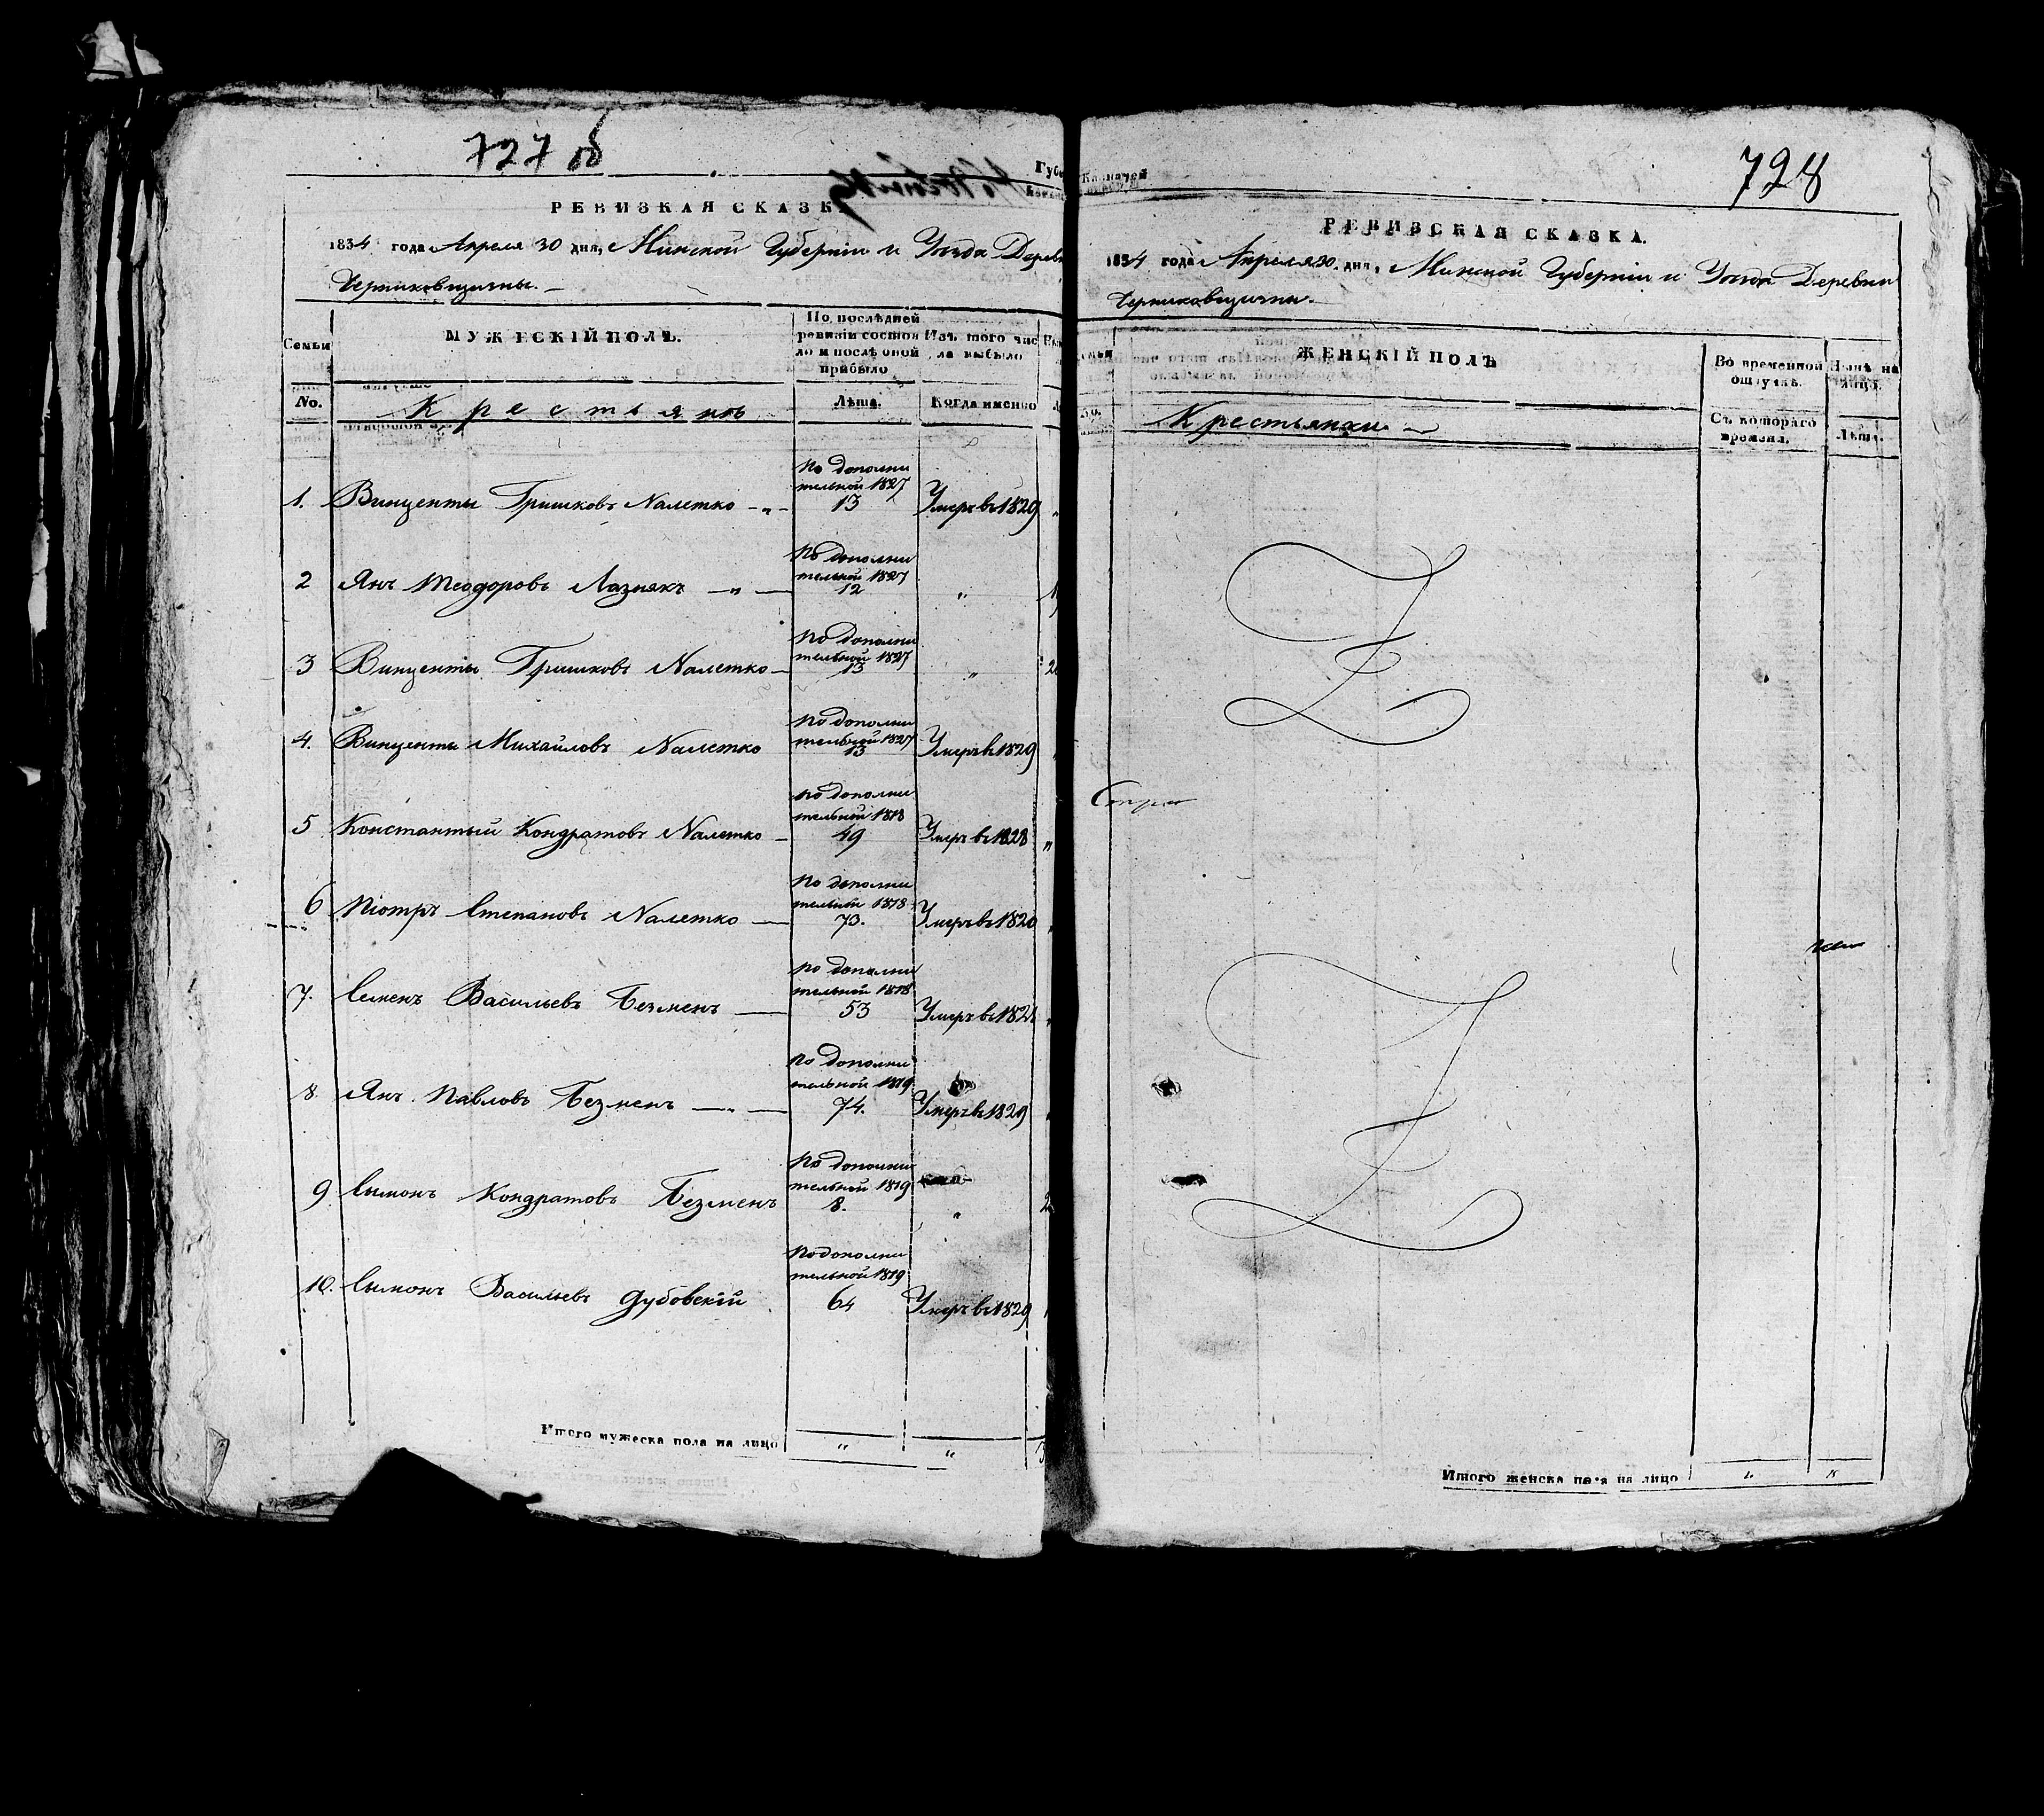 727 об
РЕВИЗКАЯ СКАЗК
1834 года Апреля 30 дня, Минской Губернiи и Уезда Дерев
Черниковщизны.
Семьи
МУЖЕСКIЙ ПОЛЪ.
По послѣдней
ревизiи состоя
ло и послѣ оной
прибыло
Изъ того чис
ла выбыло
No.
Крестьянъ
Лѣта.
Когда именно
1. Винценты Гришковъ Налетко
По дополни
тельной 1827
13
Умеръ въ 1829
2 Янъ Теодоровъ Лазнякъ
По дополни
тельной 1827
12
3 Винценты Гришковъ Налетко
По дополни
тельной 1827
13
4. Винценты Михайловъ Налетко
По дополни
тельной 1827
13
Умеръ въ 1829
5 Константый Кондратовъ Налетко
По дополни
тельной 1818
49
Умеръ въ 1828
6 Пiотръ Степановъ Налетко
По дополни
тельной 1818
73.
Умеръ въ 1820
7. Семенъ Васильевъ Безменъ
По дополни
тельной 1818
53
Умеръ въ
8. Янъ Павловъ Безменъ
По дополни
тельной 1819
74.
Умеръ въ 1829
9. Сымонъ Кондратовъ Безменъ
По дополни
тельной 1819
8.
10. Сымонъ Васильевъ Дубовскiй
По дополни
тельной 1819
64
Умеръ въ 1829
Итого мужеска пола на лицо
728
РЕВИЗСКАЯ СКАЗКА.
1834 года Апреля 30. дня, Минской Губернiи и Уезда Деревни
Черниковщизны.
ЖЕНСКIЙ ПОЛЪ
Во временной
отлучкѣ.
Нынѣ на
лицо.
Крестьянки
Съ котораго
времени.
Лѣта.
Итого женска пола на лицо